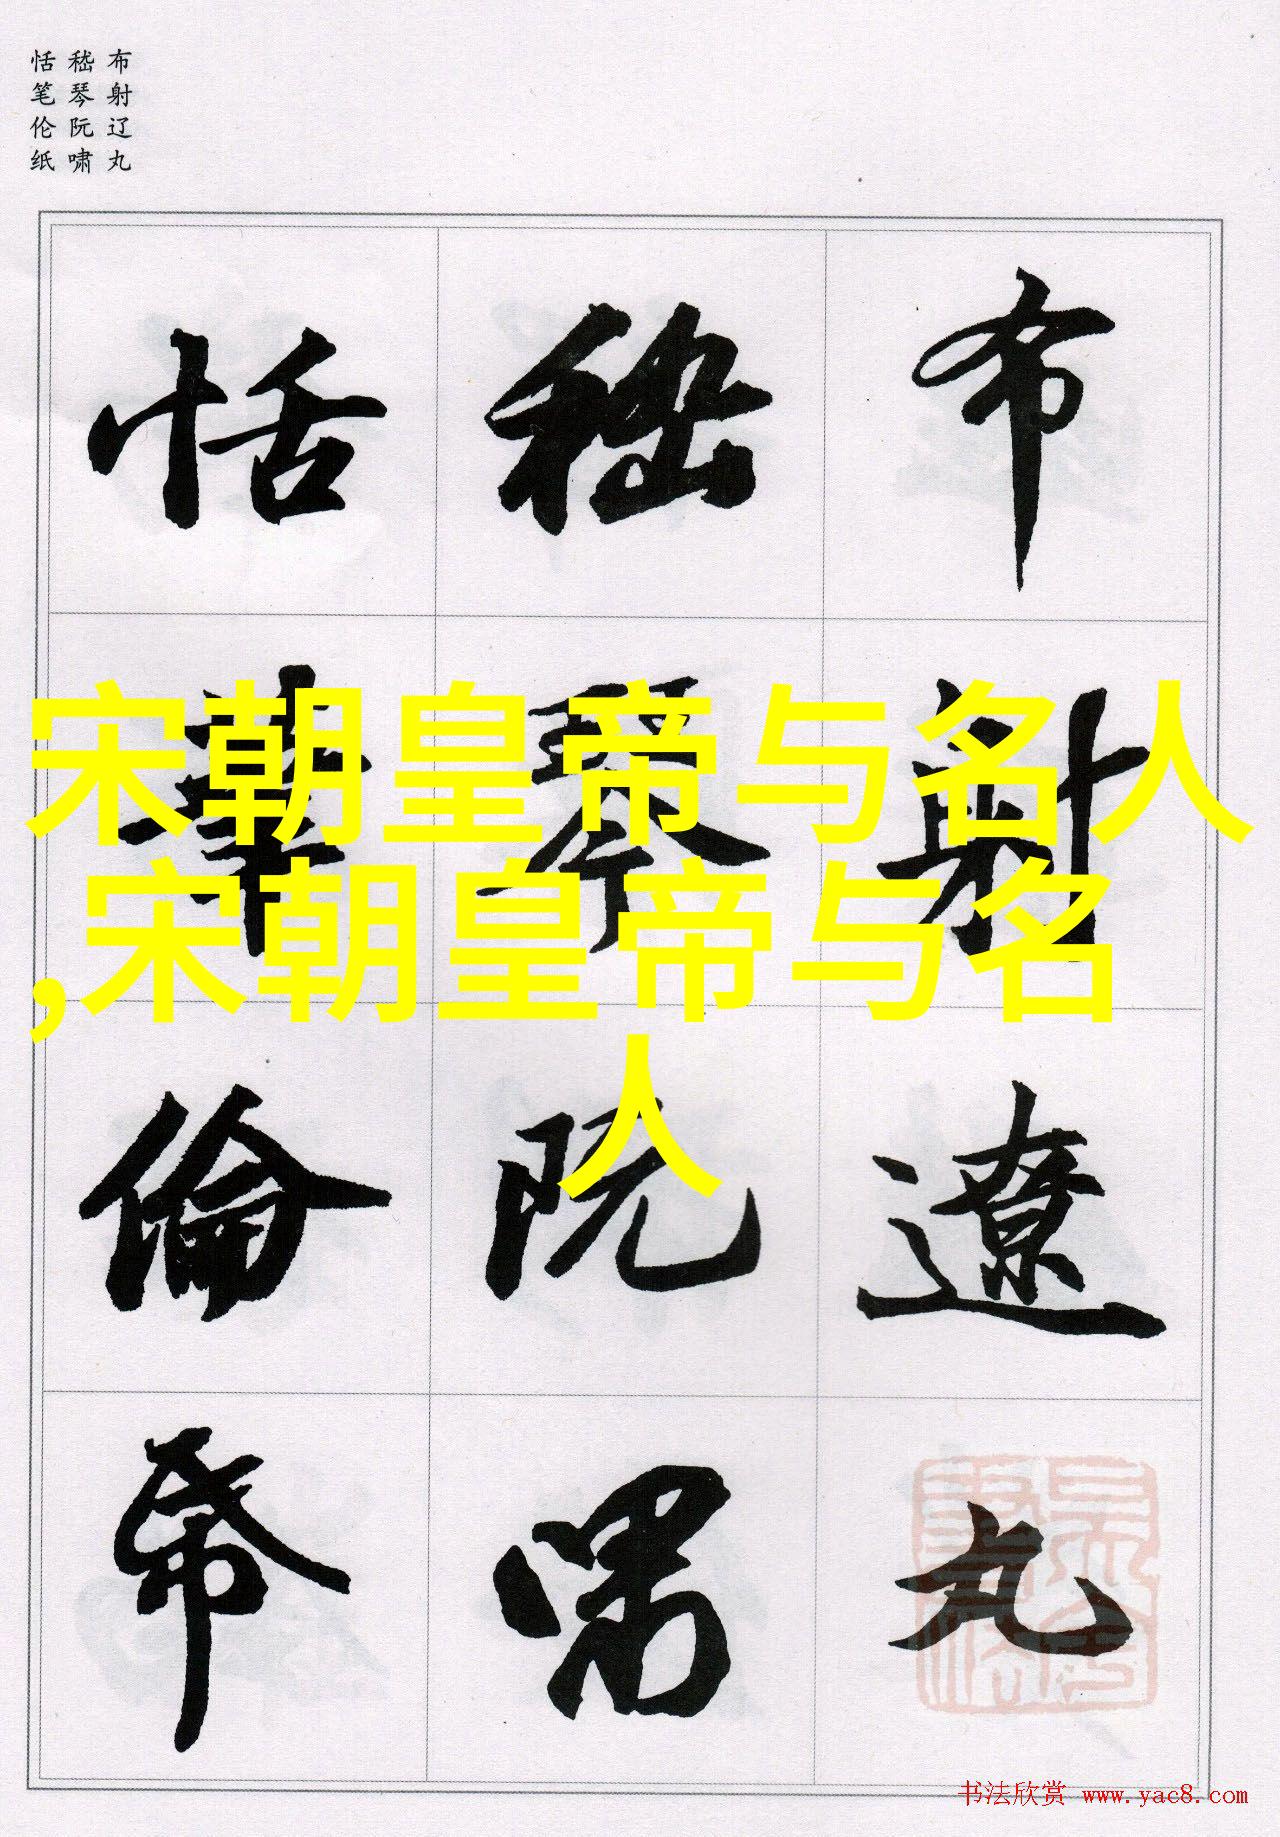 布射辽丸
嵇琴阮啸
恬笔伦纸
布射遼丸
嵇琴阮嘯
恬筆倫帋
宋朝皇帝与名人
,宋朝皇帝与名
人
书法欣赏 www.yac8.com